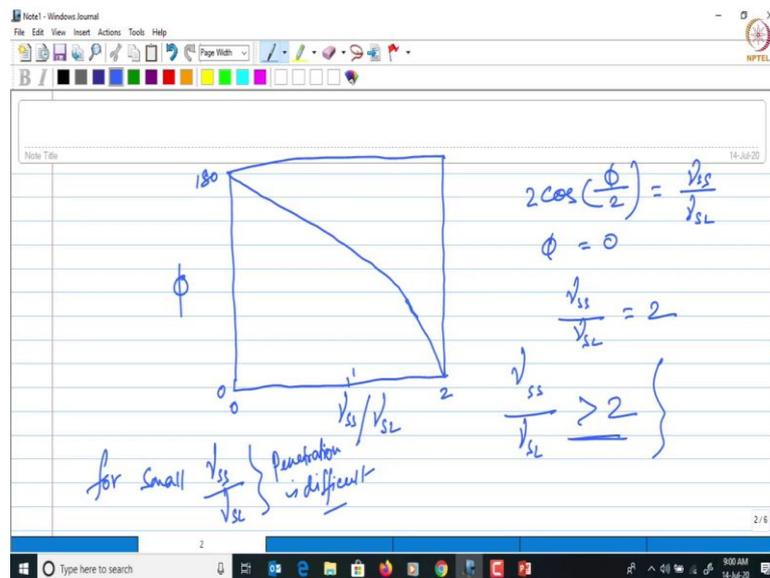 Note1 - Windows Journal
File Edit View Insert Actions Tools Help
Page Width
NPTEL
B I
Note Title
14-Jul-20
180
ϕ
0
0
1
2
γss/γsL
2cos(ϕ/2) = γss/γsL
ϕ = 0
γss/γsL = 2
γss/γsL > 2 }
for small γss/γsL } Penetration is difficult
2 / 6
2
Type here to search
9:00 AM
14-Jul-20